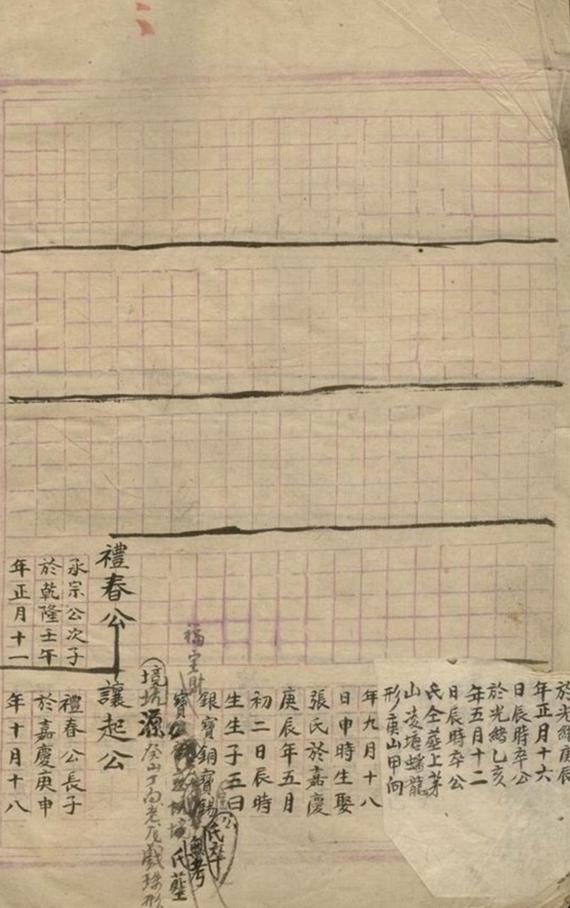 於光緒庚辰
年正月十六
日辰時卒公
於光緒乙亥
年五月十二
日辰時卒公
氏仝葬上茅
形庚山甲向
年九月十八
日申時生娶
張氏於嘉慶
庚辰年五月
初二日辰時
生生子五曰
銀寶銅寶錫
氏卒
無考
寶
氏葬
境坑源癸山丁向
禮春公
讓起公
承宗公次子
於乾隆壬午
年正月十一
禮春公長子
於嘉慶庚申
年十月十八